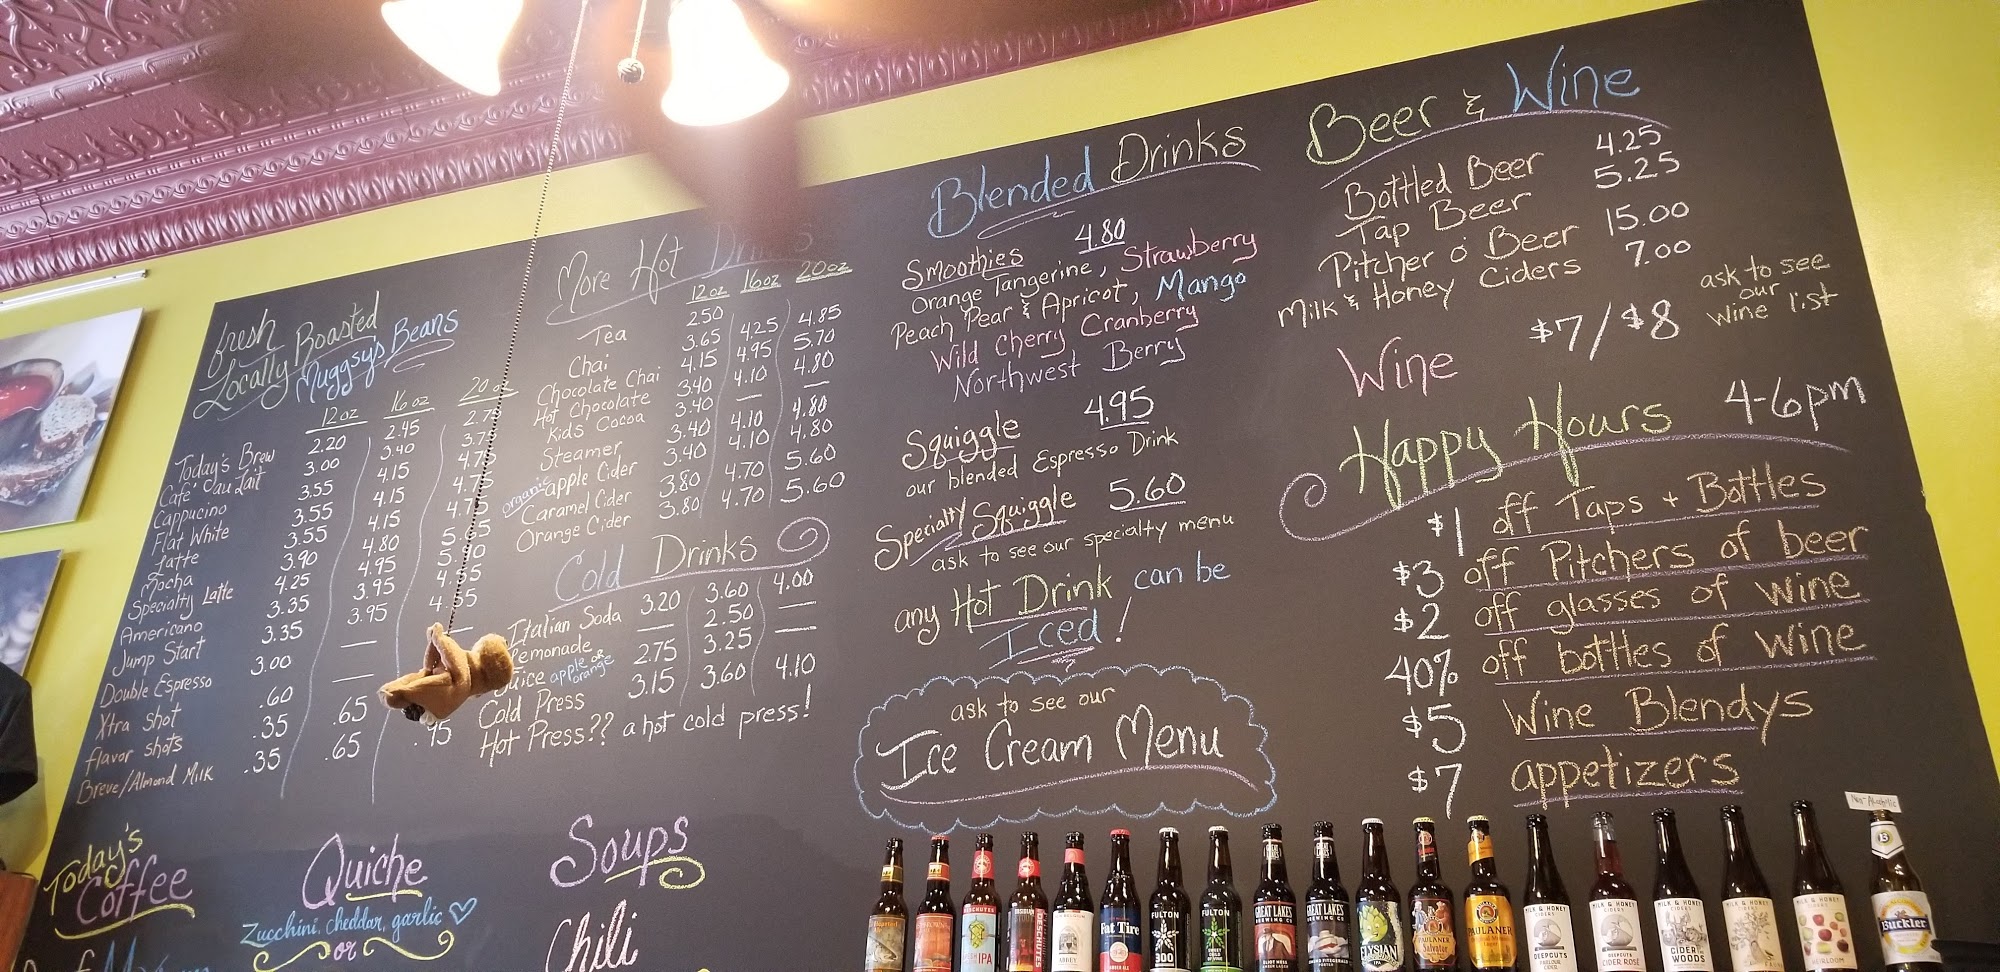 fresh
Locally Roasted
Muggsy's Beans
12oz 16oz 20oz
Today's Brew 2.20 2.45 2.75
Cafe' au Lait 3.00 3.40 3.75
Cappucino 3.55 4.15 4.75
Flat White 3.55 4.15 4.75
Latte 3.55 4.15 4.75
Mocha 3.90 4.80 5.65
Specialty Latte 4.25 4.95
Americano 3.35 3.95
Jump Start 3.35 3.95
Double Espresso 3.00 — —
Xtra shot .60
flavor shots .35 .65
Breve/Almond Milk .35 .65 .95
More Hot Drinks
12oz 16oz 20oz
Tea 2.50
Chai 3.65 4.25 4.85
Chocolate Chai 4.15 4.95 5.70
Hot Chocolate 3.40 4.10 4.80
Kids' Cocoa 3.40 — —
Steamer 3.40 4.10 4.80
organic apple Cider 3.40 4.10 4.80
Caramel Cider 3.80 4.70 5.60
Orange Cider 3.80 4.70 5.60
Cold Drinks
Italian Soda 3.20 3.60 4.00
Lemonade — 2.50 —
Juice apple or orange 2.75 3.25 —
Cold Press 3.15 3.60 4.10
Hot Press?? a hot cold press!
Blended Drinks
Smoothies 4.80
Orange Tangerine, Strawberry
Peach Pear & Apricot, Mango
Wild Cherry Cranberry
Northwest Berry
Squiggle 4.95
our blended Espresso Drink
Specialty Squiggle 5.60
ask to see our specialty menu
any Hot Drink can be
Iced!
ask to see our
Ice Cream Menu
Beer & Wine
Bottled Beer 4.25
Tap Beer 5.25
Pitcher o' Beer 15.00
Milk & Honey Ciders 7.00
Wine $7/$8
ask to see
our
wine list
Happy Hours 4-6pm
$1 off Taps + Bottles
$3 off Pitchers of beer
$2 off glasses of wine
40% off bottles of wine
$5 Wine Blendys
$7 appetizers
Today's
Coffee
Quiche
Zucchini, cheddar, garlic
or
Soups
Chili
DESCHUTES
IPA
DESCHUTES
ABBEY
Fat Tire
FULTON
300
FULTON
GREAT LAKES
BREWING CO
ELIOT NESS
GREAT LAKES
BREWING CO
EDMUND FITZGERALD
PORTER
ELYSIAN
IPA
PAULANER
Salvator
PAULANER
MILK & HONEY
CIDERS
DEEPCUTS
MILK & HONEY
CIDERS
CIDER ROSÉ
MILK & HONEY
CIDERS
CIDER
WOODS
MILK & HONEY
CIDERS
MILK & HONEY
CIDERS
HEIRLOOM
Non-Alcoholic
Buckler